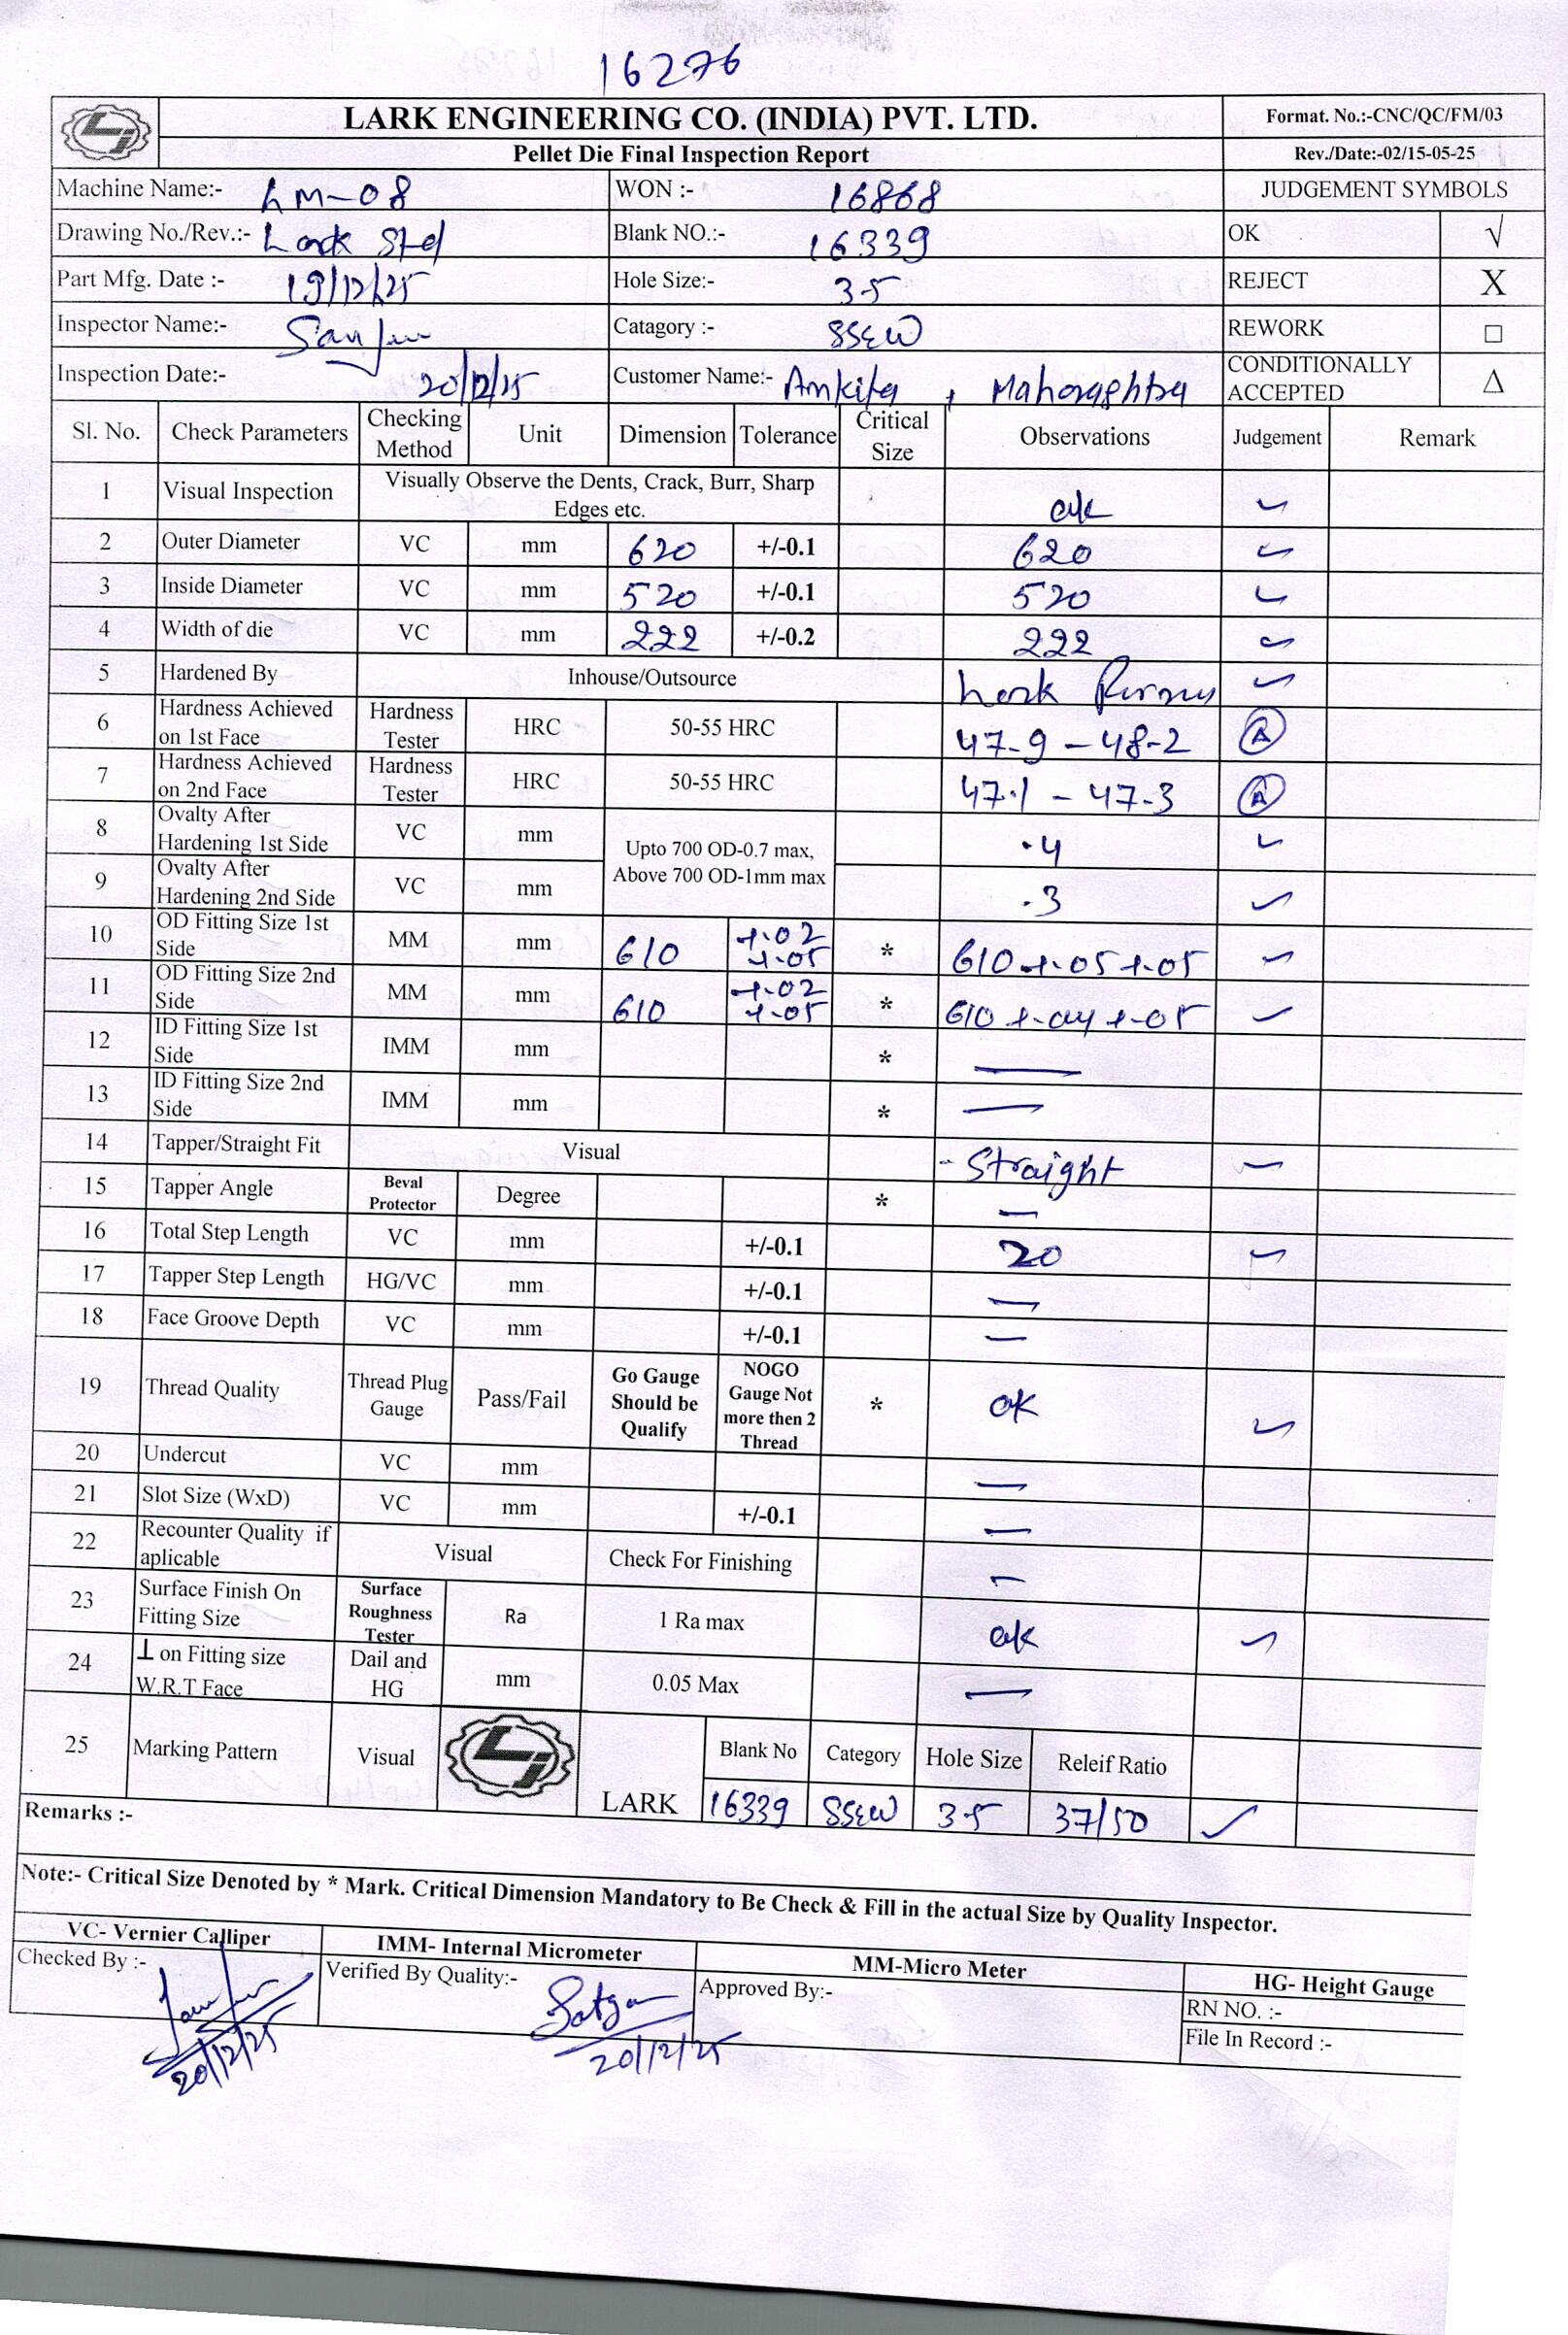 16276
LARK ENGINEERING CO. (INDIA) PVT. LTD.
Format. No.:-CNC/QC/FM/03
Pellet Die Final Inspection Report
Rev./Date:-02/15-05-25
Machine Name:- LM-08 WON :- 16868 JUDGEMENT SYMBOLS
Drawing No./Rev.:- Lark Std Blank NO.:- 16339 OK √
Part Mfg. Date :- 19/12/25 Hole Size:- 3.5 REJECT X
Inspector Name:- Catagory :- SSEW REWORK □
Inspection Date:- 20/12/25 Customer Name:- Ankita, Maharashtra CONDITIONALLY ACCEPTED Δ
Sl. No. Check Parameters Checking Method Unit Dimension Tolerance Critical Size Observations Judgement Remark
1 Visual Inspection Visually Observe the Dents, Crack, Burr, Sharp Edges etc. ok ✓
2 Outer Diameter VC mm 620 +/-0.1 620 ✓
3 Inside Diameter VC mm 520 +/-0.1 520 ✓
4 Width of die VC mm 222 +/-0.2 222 ✓
5 Hardened By Inhouse/Outsource Lark ✓
6 Hardness Achieved on 1st Face Hardness Tester HRC 50-55 HRC 47.9 - 48.2 A
7 Hardness Achieved on 2nd Face Hardness Tester HRC 50-55 HRC 47.1 - 47.3 A
8 Ovalty After Hardening 1st Side VC mm Upto 700 OD-0.7 max, Above 700 OD-1mm max .4 ✓
9 Ovalty After Hardening 2nd Side VC mm .3 ✓
10 OD Fitting Size 1st Side MM mm 610 +.02 +.05 * 610 +.05 +.05 ✓
11 OD Fitting Size 2nd Side MM mm 610 +.02 +.05 * 610 +.04 +.05 ✓
12 ID Fitting Size 1st Side IMM mm * —
13 ID Fitting Size 2nd Side IMM mm * —
14 Tapper/Straight Fit Visual - Straight ✓
15 Tapper Angle Beval Protector Degree * —
16 Total Step Length VC mm +/-0.1 20 ✓
17 Tapper Step Length HG/VC mm +/-0.1 —
18 Face Groove Depth VC mm +/-0.1 —
19 Thread Quality Thread Plug Gauge Pass/Fail Go Gauge Should be Qualify NOGO Gauge Not more then 2 Thread * ok ✓
20 Undercut VC mm —
21 Slot Size (WxD) VC mm +/-0.1 —
22 Recounter Quality if aplicable Visual Check For Finishing —
23 Surface Finish On Fitting Size Surface Roughness Tester Ra 1 Ra max ok ✓
24 ⊥ on Fitting size W.R.T Face Dail and HG mm 0.05 Max —
25 Marking Pattern Visual LARK Blank No Category Hole Size Releif Ratio
16339 SSEW 3.5 37/50 ✓
Remarks :-
Note:- Critical Size Denoted by * Mark. Critical Dimension Mandatory to Be Check & Fill in the actual Size by Quality Inspector.
VC- Vernier Calliper IMM- Internal Micrometer MM-Micro Meter HG- Height Gauge
Checked By :- Verified By Quality:- Approved By:- RN NO. :-
File In Record :-
20/12/25 20/12/25